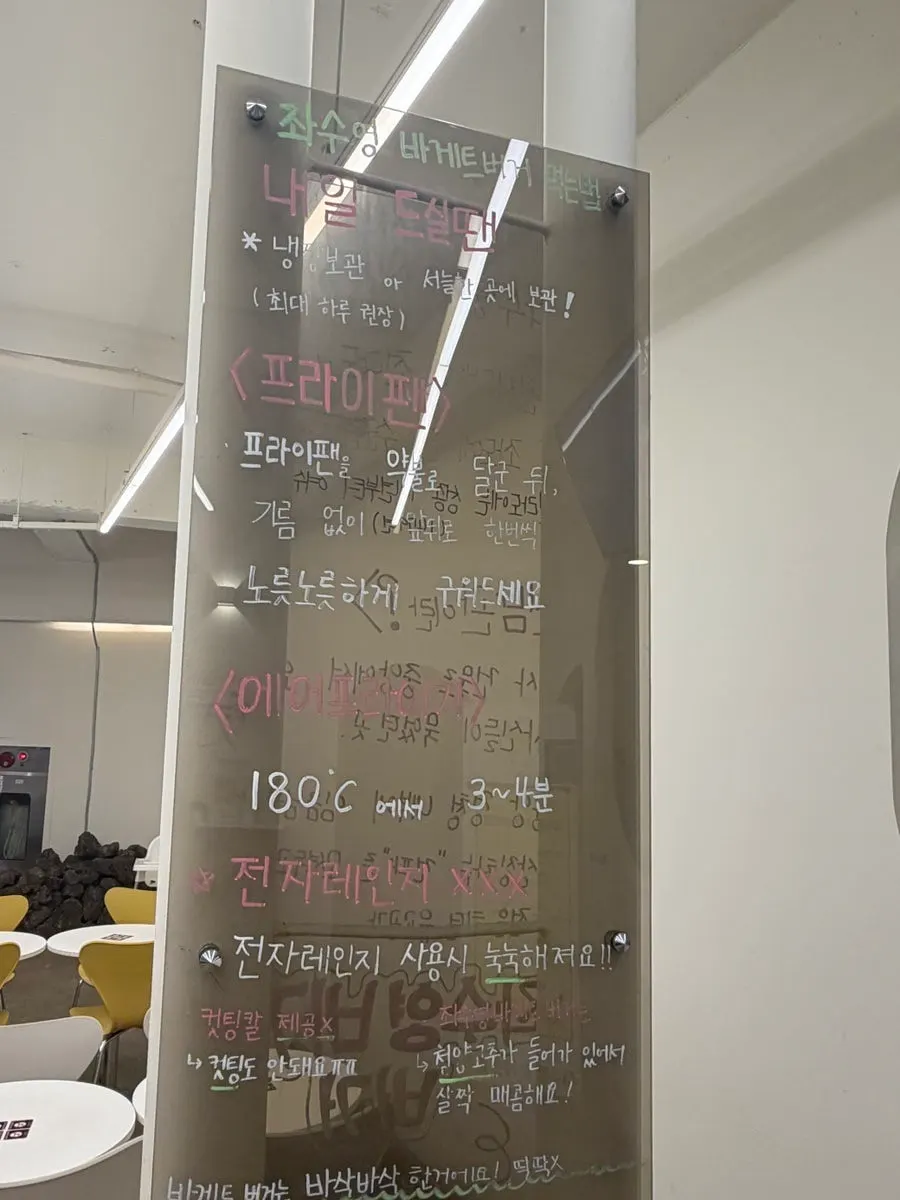 좌수영 바게트버거 먹는법
내일 드실땐
* 냉장보관 or 서늘한 곳에 보관!
(최대 하루 권장)
<프라이팬>
프라이팬을 약불로 달군 뒤,
기름 없이 앞뒤로 한번씩
노릇노릇하게 구워드세요
<에어프라이기>
180°C 에서 3~4분
* 전자레인지 XXX
전자레인지 사용시 눅눅해져요!!
컷팅칼 제공X
↳ 컷팅도 안돼요ㅠㅠ
좌수영바게트버거는
↳ 청양고추가 들어가 있어서
살짝 매콤해요!
바게트 버거는 바삭바삭 한거에요! 딱딱X